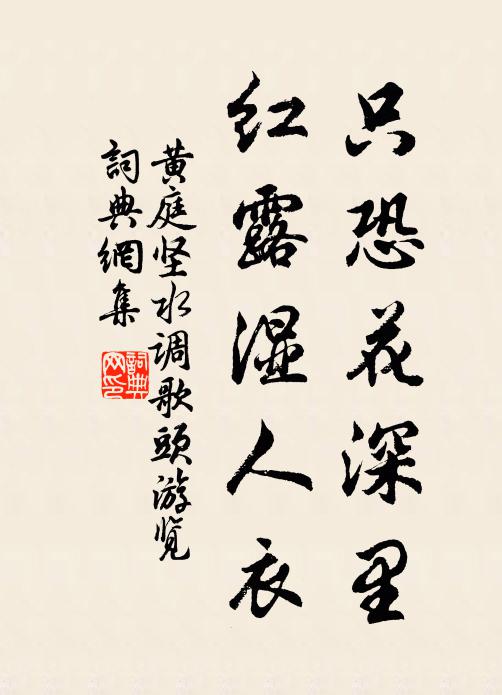 只恐花深里
红露湿人衣
黄庭坚水调歌头游览
詞典網集
詞典
网印